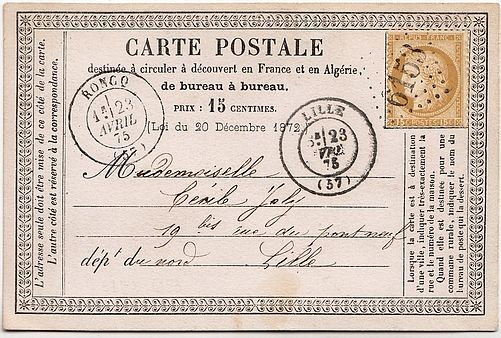 CARTE POSTALE
destinée à circuler à découvert en France et en Algérie,
de bureau à bureau.
PRIX : 15 CENTIMES.
(Loi du 20 Décembre 1872.)
RONCQ
23
AVRIL
75
(57)
LILLE
23
AVR
75
(57)
6153
Mademoiselle
Cécile Joly
19 bis rue du pont neuf
dépt du nord Lille
L'adresse seule doit être mise de ce côté de la carte.
L'autre côté est réservé à la correspondance.
Lorsque la carte est à destination
d'une ville, indiquer très-exactement la
rue et le numéro de la maison.
Quand elle est destinée pour une
commune rurale, indiquer le nom du
bureau de poste qui la dessert.